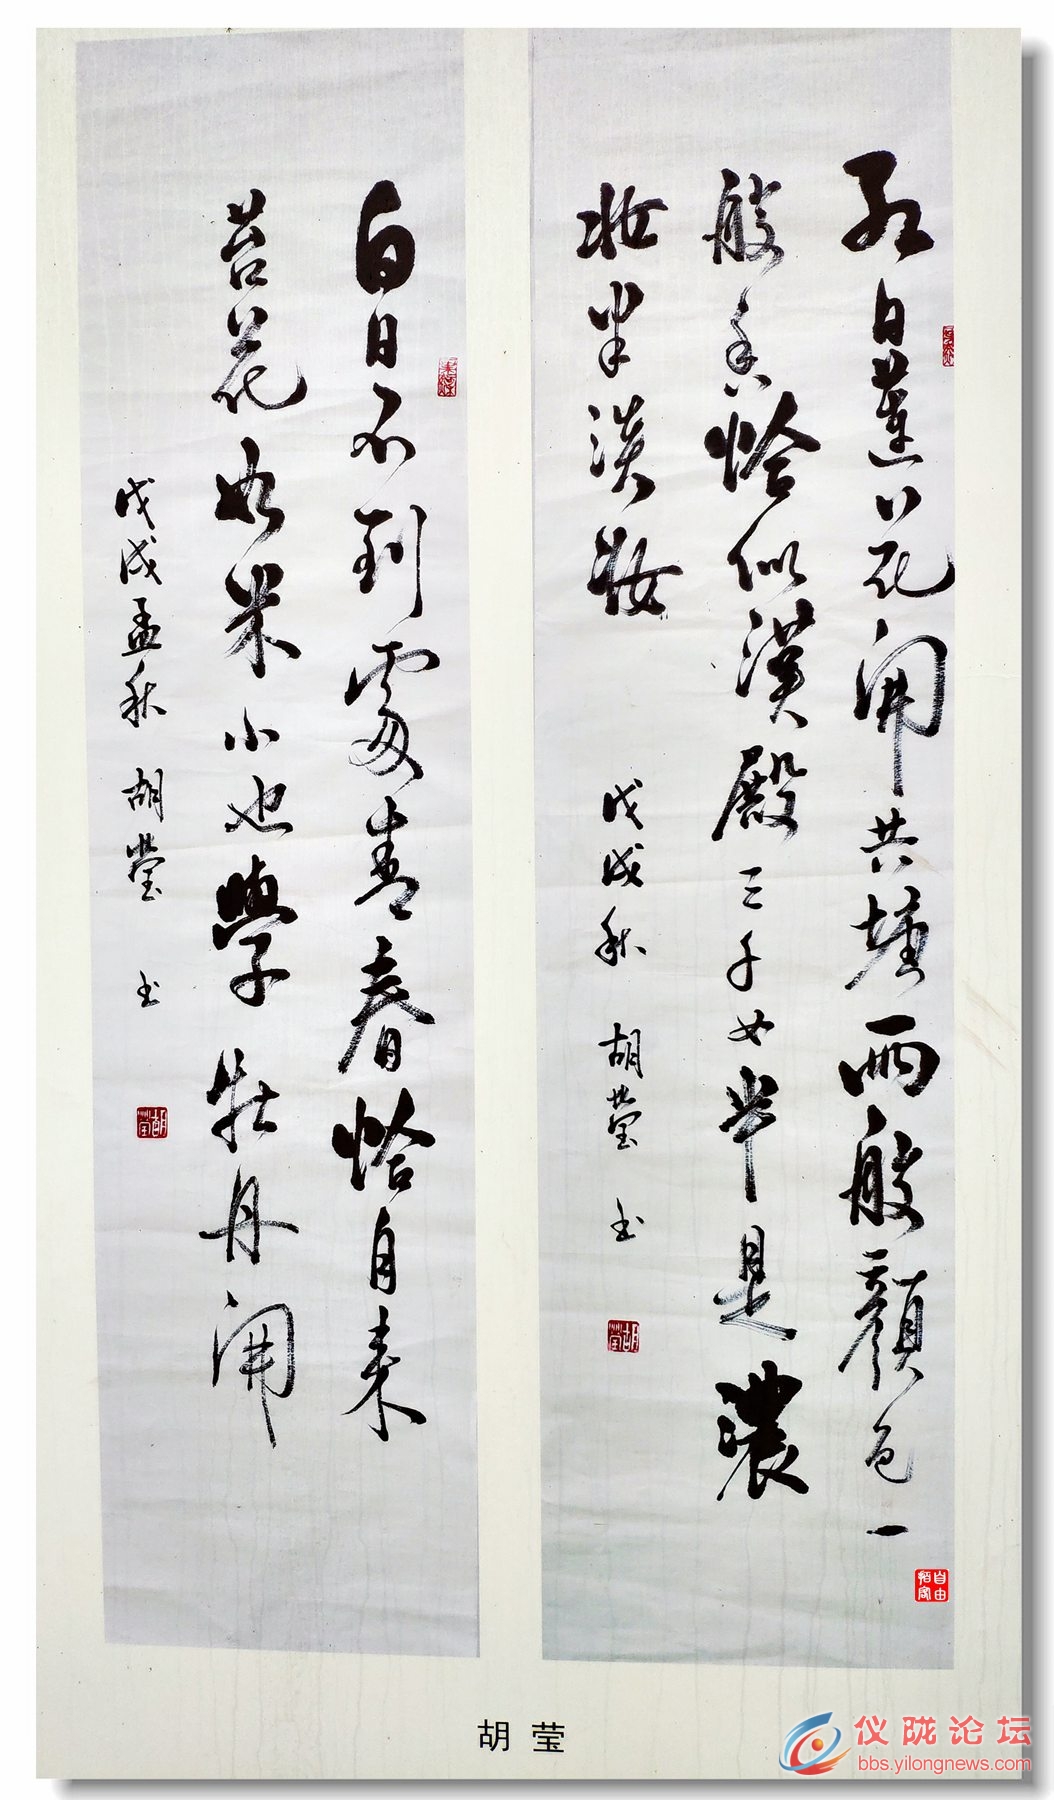 红白蓮花開共塘两般顏色一
般香恰似漢殿三千女半是濃
妆半淡妝
戊戌秋 胡莹 书
胡莹
白日不到處青春恰自来
苔花如米小也學牡丹開
戊戌孟秋 胡莹 书
胡莹
胡莹
仪陇论坛
bbs.yilongnews.com